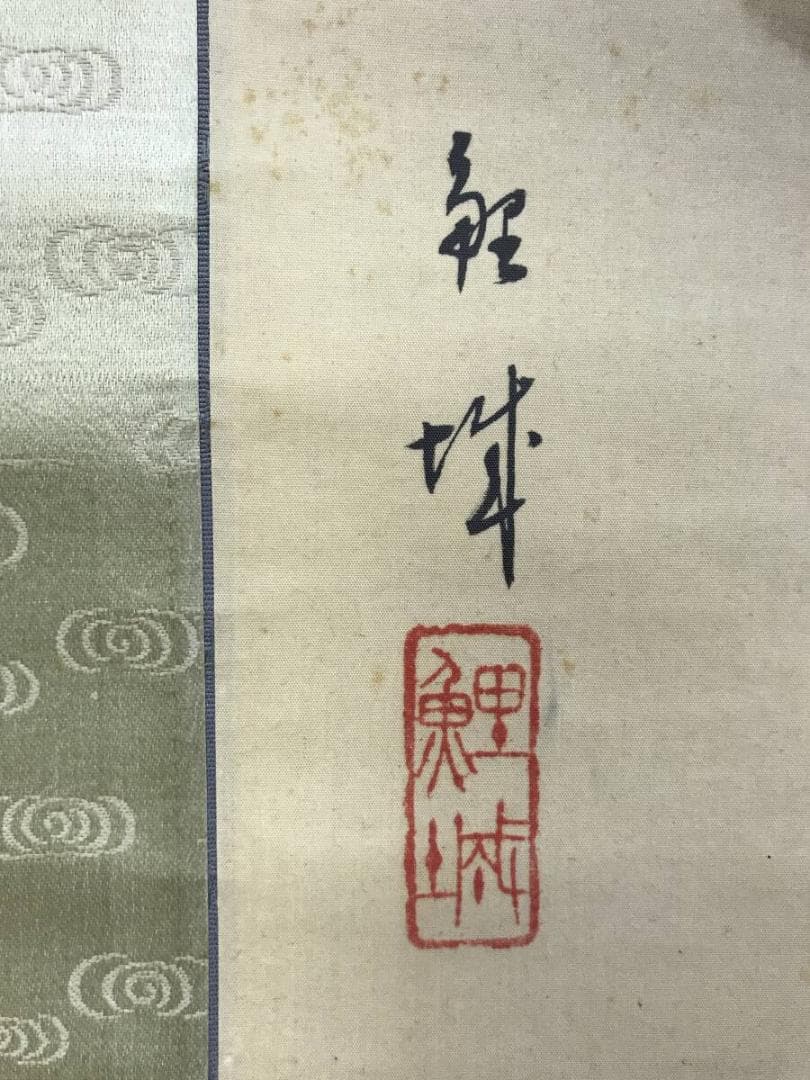 鯉城
鯉城